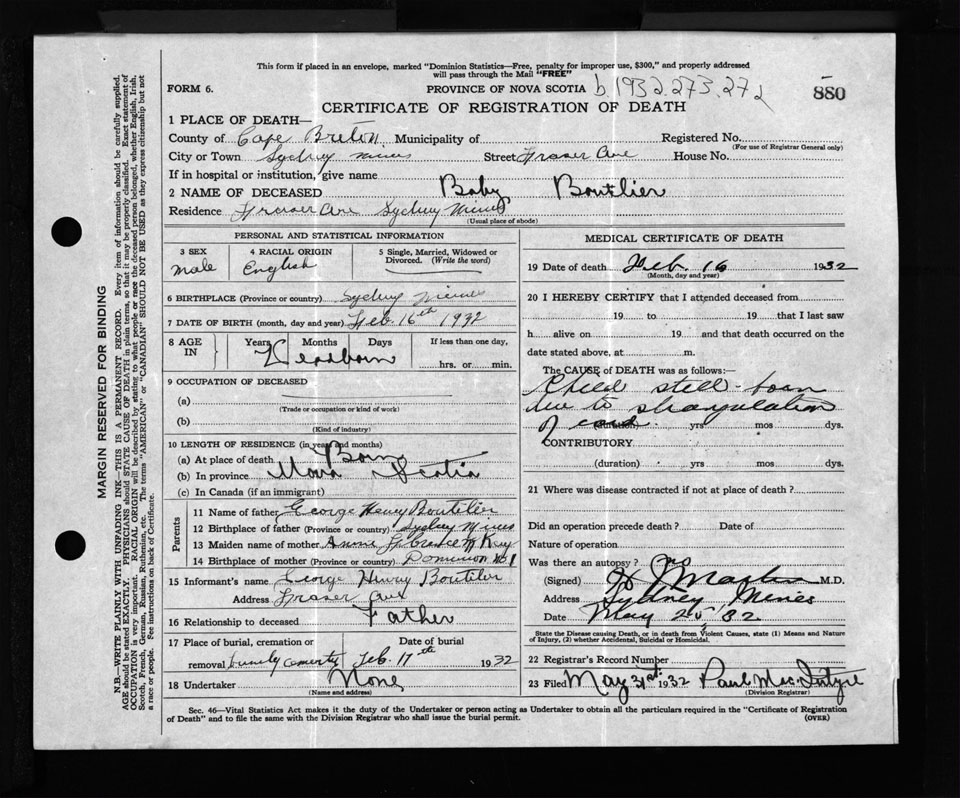 This form if placed in an envelope, marked "Dominion Statistics—Free, penalty for improper use, $300," and properly addressed
will pass through the Mail "FREE"
FORM 6. PROVINCE OF NOVA SCOTIA b.1932.273.272 880
CERTIFICATE OF REGISTRATION OF DEATH
1 PLACE OF DEATH—
County of Cape Breton Municipality of Registered No.
(For use of Registrar General only)
City or Town Sydney Mines Street Fraser Ave House No.
If in hospital or institution, give name
2 NAME OF DECEASED Baby Boutlier
Residence Fraser Ave Sydney Mines
(Usual place of abode)
PERSONAL AND STATISTICAL INFORMATION
3 SEX 4 RACIAL ORIGIN 5 Single, Married, Widowed or
Divorced. (Write the word)
Male English
6 BIRTHPLACE (Province or country) Sydney Mines
7 DATE OF BIRTH (month, day and year) Feb 16th 1932
8 AGE IN Years Months Days If less than one day,
hrs. or min.
9 OCCUPATION OF DECEASED
(a)
(Trade or occupation or kind of work)
(b)
(Kind of industry)
10 LENGTH OF RESIDENCE (in years and months)
(a) At place of death Born
(b) In province Nova Scotia
(c) In Canada (if an immigrant)
Parents
11 Name of father George Henry Boutilier
12 Birthplace of father (Province or country) Sydney Mines
13 Maiden name of mother Annie McKay
14 Birthplace of mother (Province or country) Dominion No 1
15 Informant's name George Henry Boutilier
Address Fraser Ave
16 Relationship to deceased Father
17 Place of burial, cremation or Date of burial
removal cemetry Feb. 17th 1932
18 Undertaker None
(Name and address)
MEDICAL CERTIFICATE OF DEATH
19 Date of death Feb. 16 1932
(Month, day and year)
20 I HEREBY CERTIFY that I attended deceased from
19 to 19 that I last saw
h alive on 19 and that death occurred on the
date stated above, at m.
The CAUSE of DEATH was as follows:
Child still-born
due to strangulation
of cord.
(duration) yrs mos dys.
CONTRIBUTORY
(duration) yrs. mos dys.
21 Where was disease contracted if not at place of death?
Did an operation precede death? Date of
Nature of operation
Was there an autopsy? No
(Signed) M.D.
Address Sydney Mines
Date May 25 '32
State the Disease causing Death, or in death from Violent Causes, state (1) Means and Nature
of Injury, (2) whether Accidental, Suicidal or Homicidal.
22 Registrar's Record Number
23 Filed May 31st 1932 Paul MacIntyre
(Division Registrar)
Sec. 46—Vital Statistics Act makes it the duty of the Undertaker or person acting as Undertaker to obtain all the particulars required in the "Certificate of Registration
of Death" and to file the same with the Division Registrar who shall issue the burial permit. (OVER)
MARGIN RESERVED FOR BINDING
N.B.—WRITE PLAINLY WITH UNFADING INK—THIS IS A PERMANENT RECORD. Every item of information should be carefully supplied.
AGE should be stated EXACTLY. PHYSICIANS should STATE CAUSE OF DEATH in plain terms, so that it may be properly classified. Exact statement of
OCCUPATION is very important. RACIAL ORIGIN will be described by stating to what people or race the deceased person belonged, whether English, Irish,
Scotch, French, German, Russian, Ruthenian, etc. The terms "AMERICAN" or "CANADIAN" SHOULD NOT BE USED as they express citizenship but not
a race or people. See instructions on back of Certificate.